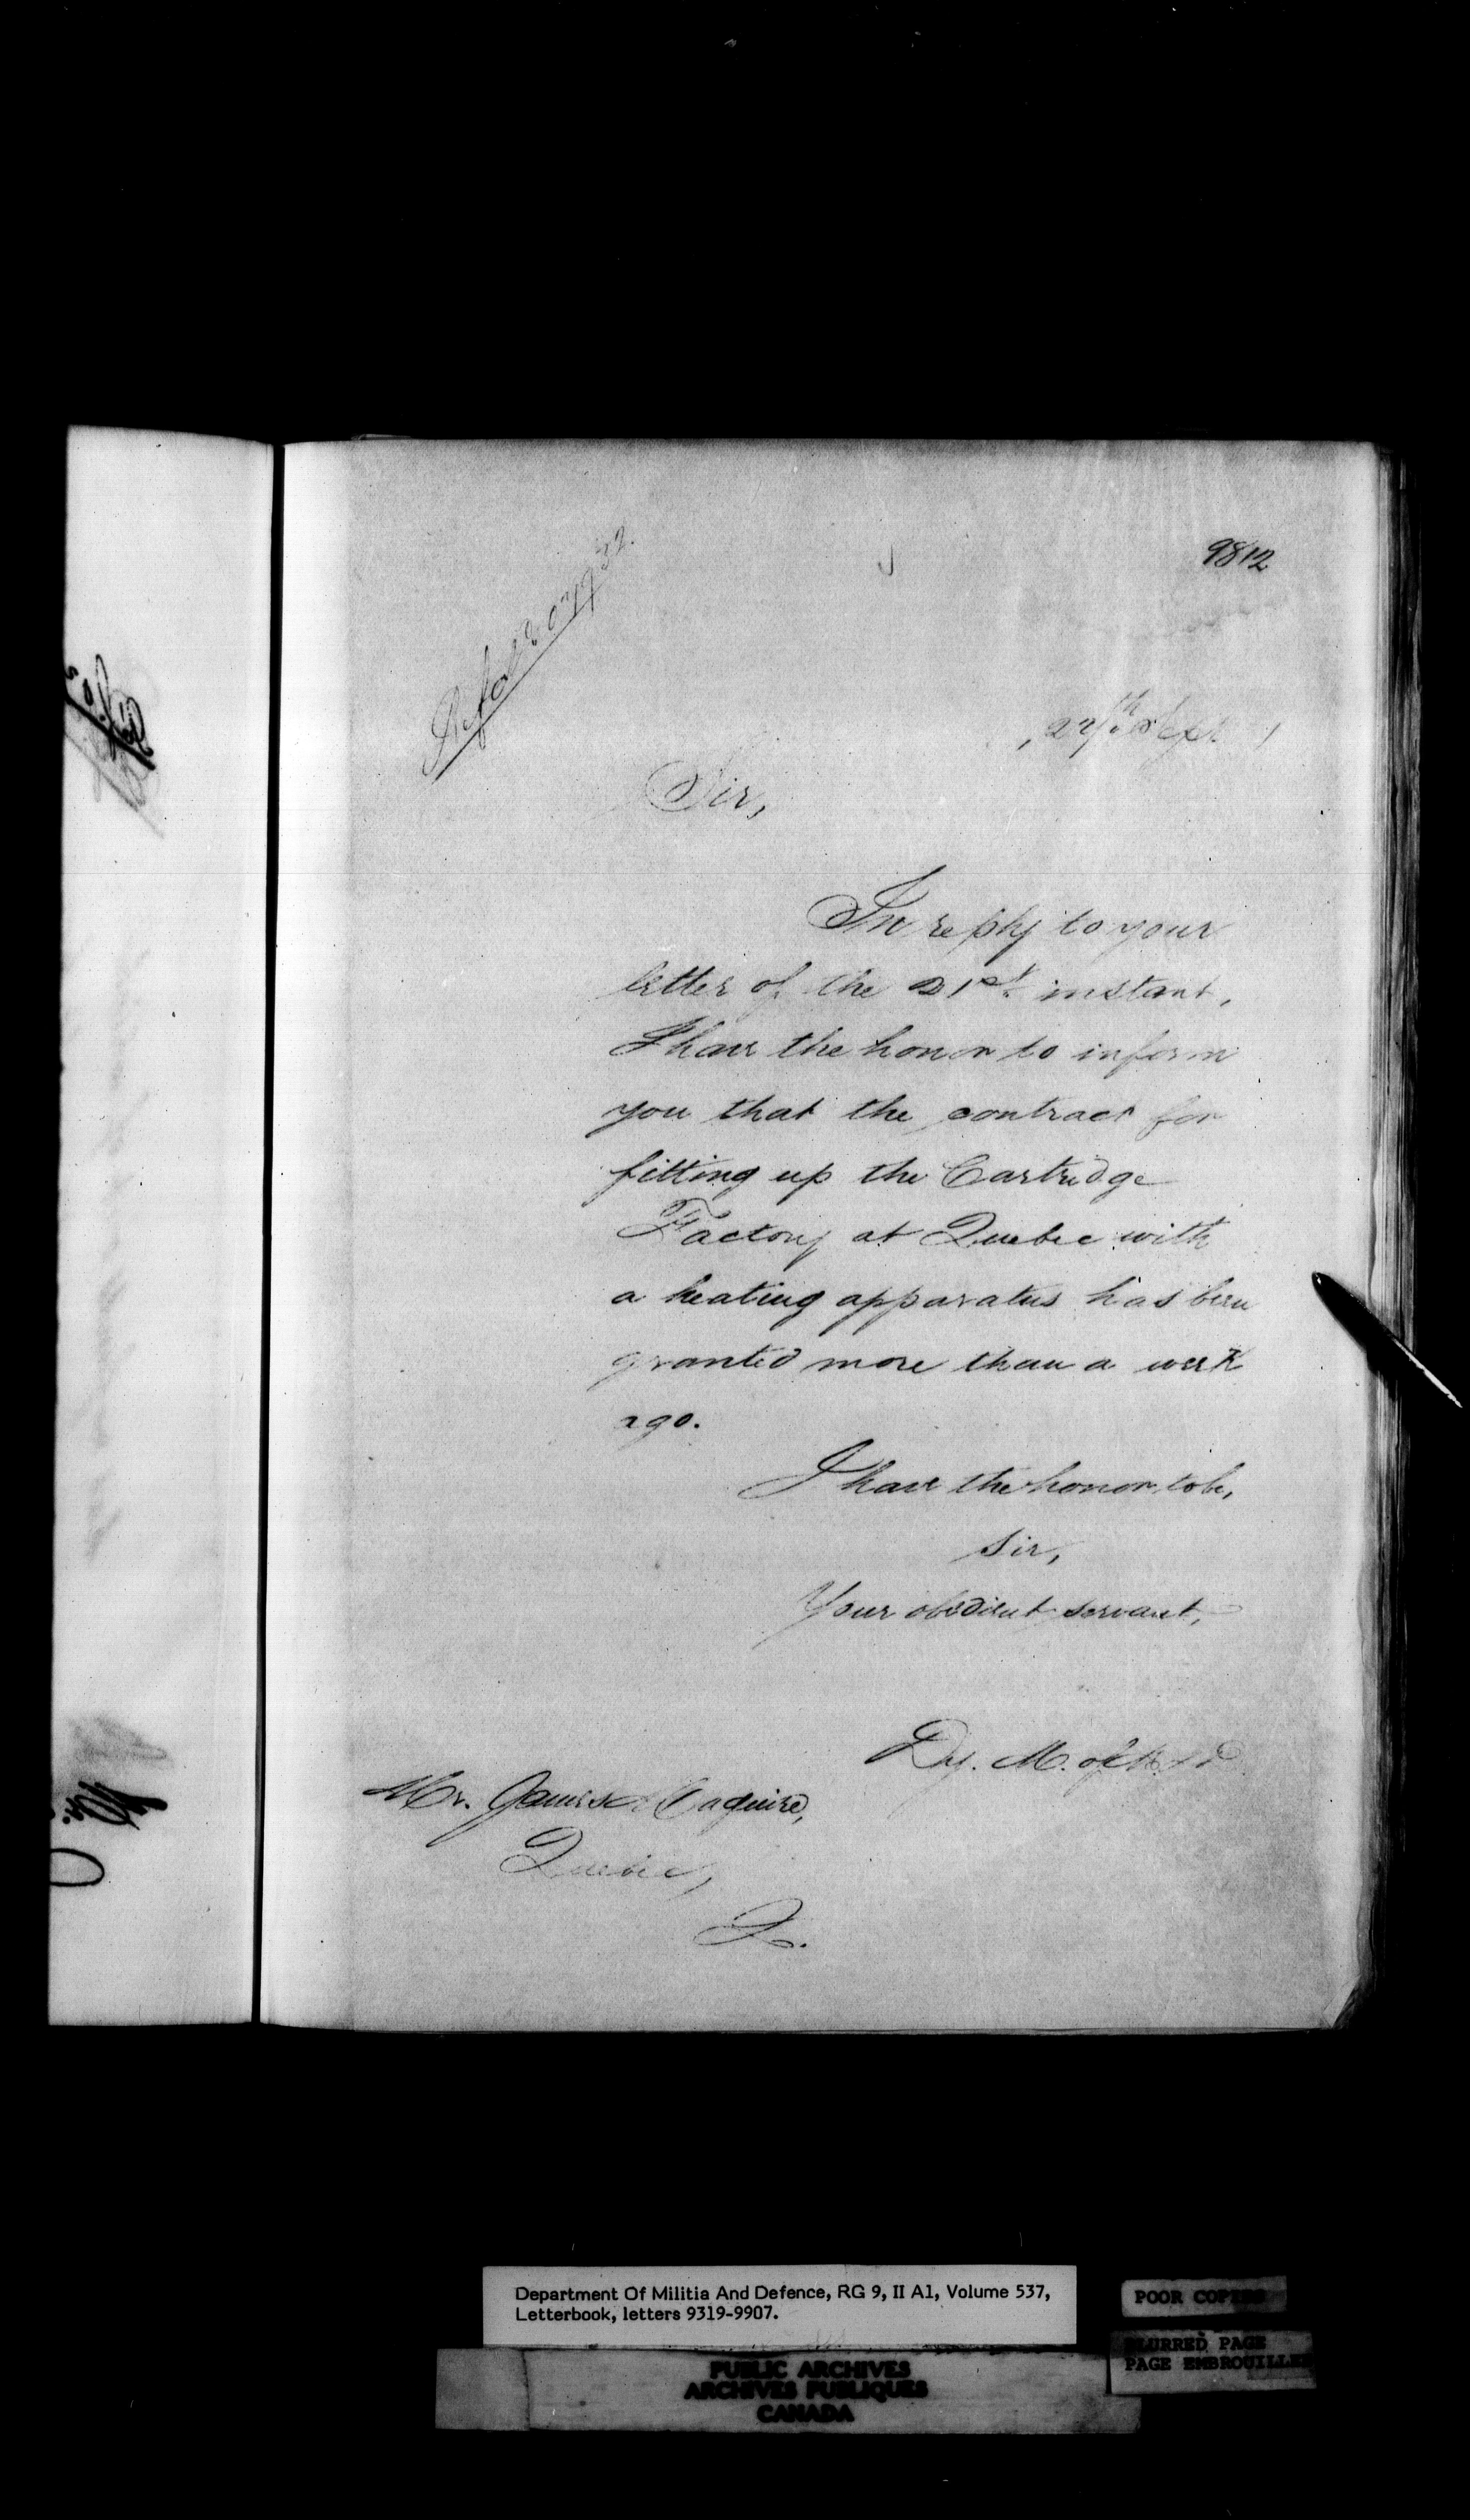 9812
27th Sept
Sir,
In reply to your
letter of the 21st instant,
I have the honor to inform
you that the contract for
fitting up the Cartridge
Factory at Quebec with
a heating apparatus has been
granted more than a week
ago.
I have the honor to be,
Sir,
Your obedient servant,
Dy. M. of M. & D.
Mr. James Maguire,
Quebec,
Q.
Department Of Militia And Defence, RG 9, II A1, Volume 537,
Letterbook, letters 9319-9907.
POOR COPIES
BLURRED PAGE
PAGE EMBROUILLEE
PUBLIC ARCHIVES
ARCHIVES PUBLIQUES
CANADA